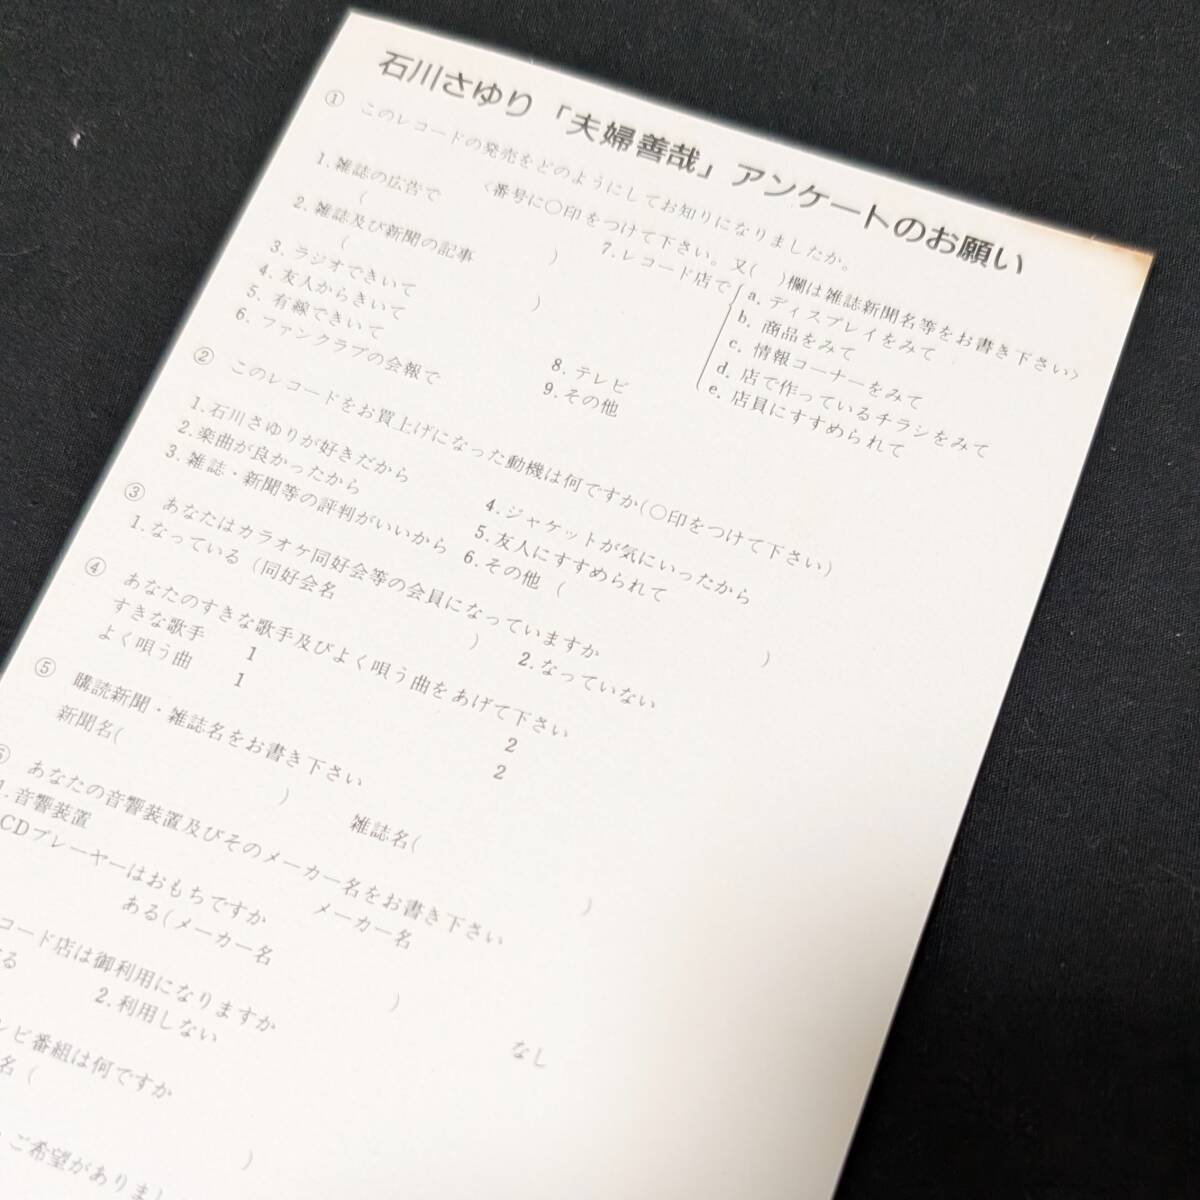 石川さゆり「夫婦善哉」アンケートのお願い
① このレコードの発売をどのようにしてお知りになりましたか。
〈番号に○印をつけて下さい。又(　)欄は雑誌新聞名等をお書き下さい〉
1. 雑誌の広告で
(　　　)
2. 雑誌及び新聞の記事
(　　　)
3. ラジオできいて
4. 友人からきいて
5. 有線できいて
6. ファンクラブの会報で
7. レコード店で
a. ディスプレイをみて
b. 商品をみて
c. 情報コーナーをみて
d. 店で作っているチラシをみて
e. 店員にすすめられて
8. テレビ
9. その他
② このレコードをお買上げになった動機は何ですか(○印をつけて下さい)
1. 石川さゆりが好きだから
2. 楽曲が良かったから
3. 雑誌・新聞等の評判がいいから
4. ジャケットが気にいったから
5. 友人にすすめられて
6. その他 (　　　)
③ あなたはカラオケ同好会等の会員になっていますか
1. なっている (同好会名　　　)　2. なっていない
④ あなたのすきな歌手及びよく唄う曲をあげて下さい
すきな歌手　1　2
よく唄う曲　1　2
⑤ 購読新聞・雑誌名をお書き下さい
新聞名(　　　)　雑誌名(　　　)
あなたの音響装置及びそのメーカー名をお書き下さい
1. 音響装置　メーカー名
CDプレーヤーはおもちですか
ある(メーカー名　　　)　なし
コード店は御利用になりますか
る　2. 利用しない
レビ番組は何ですか
名 (　　　)
ご希望がありまし